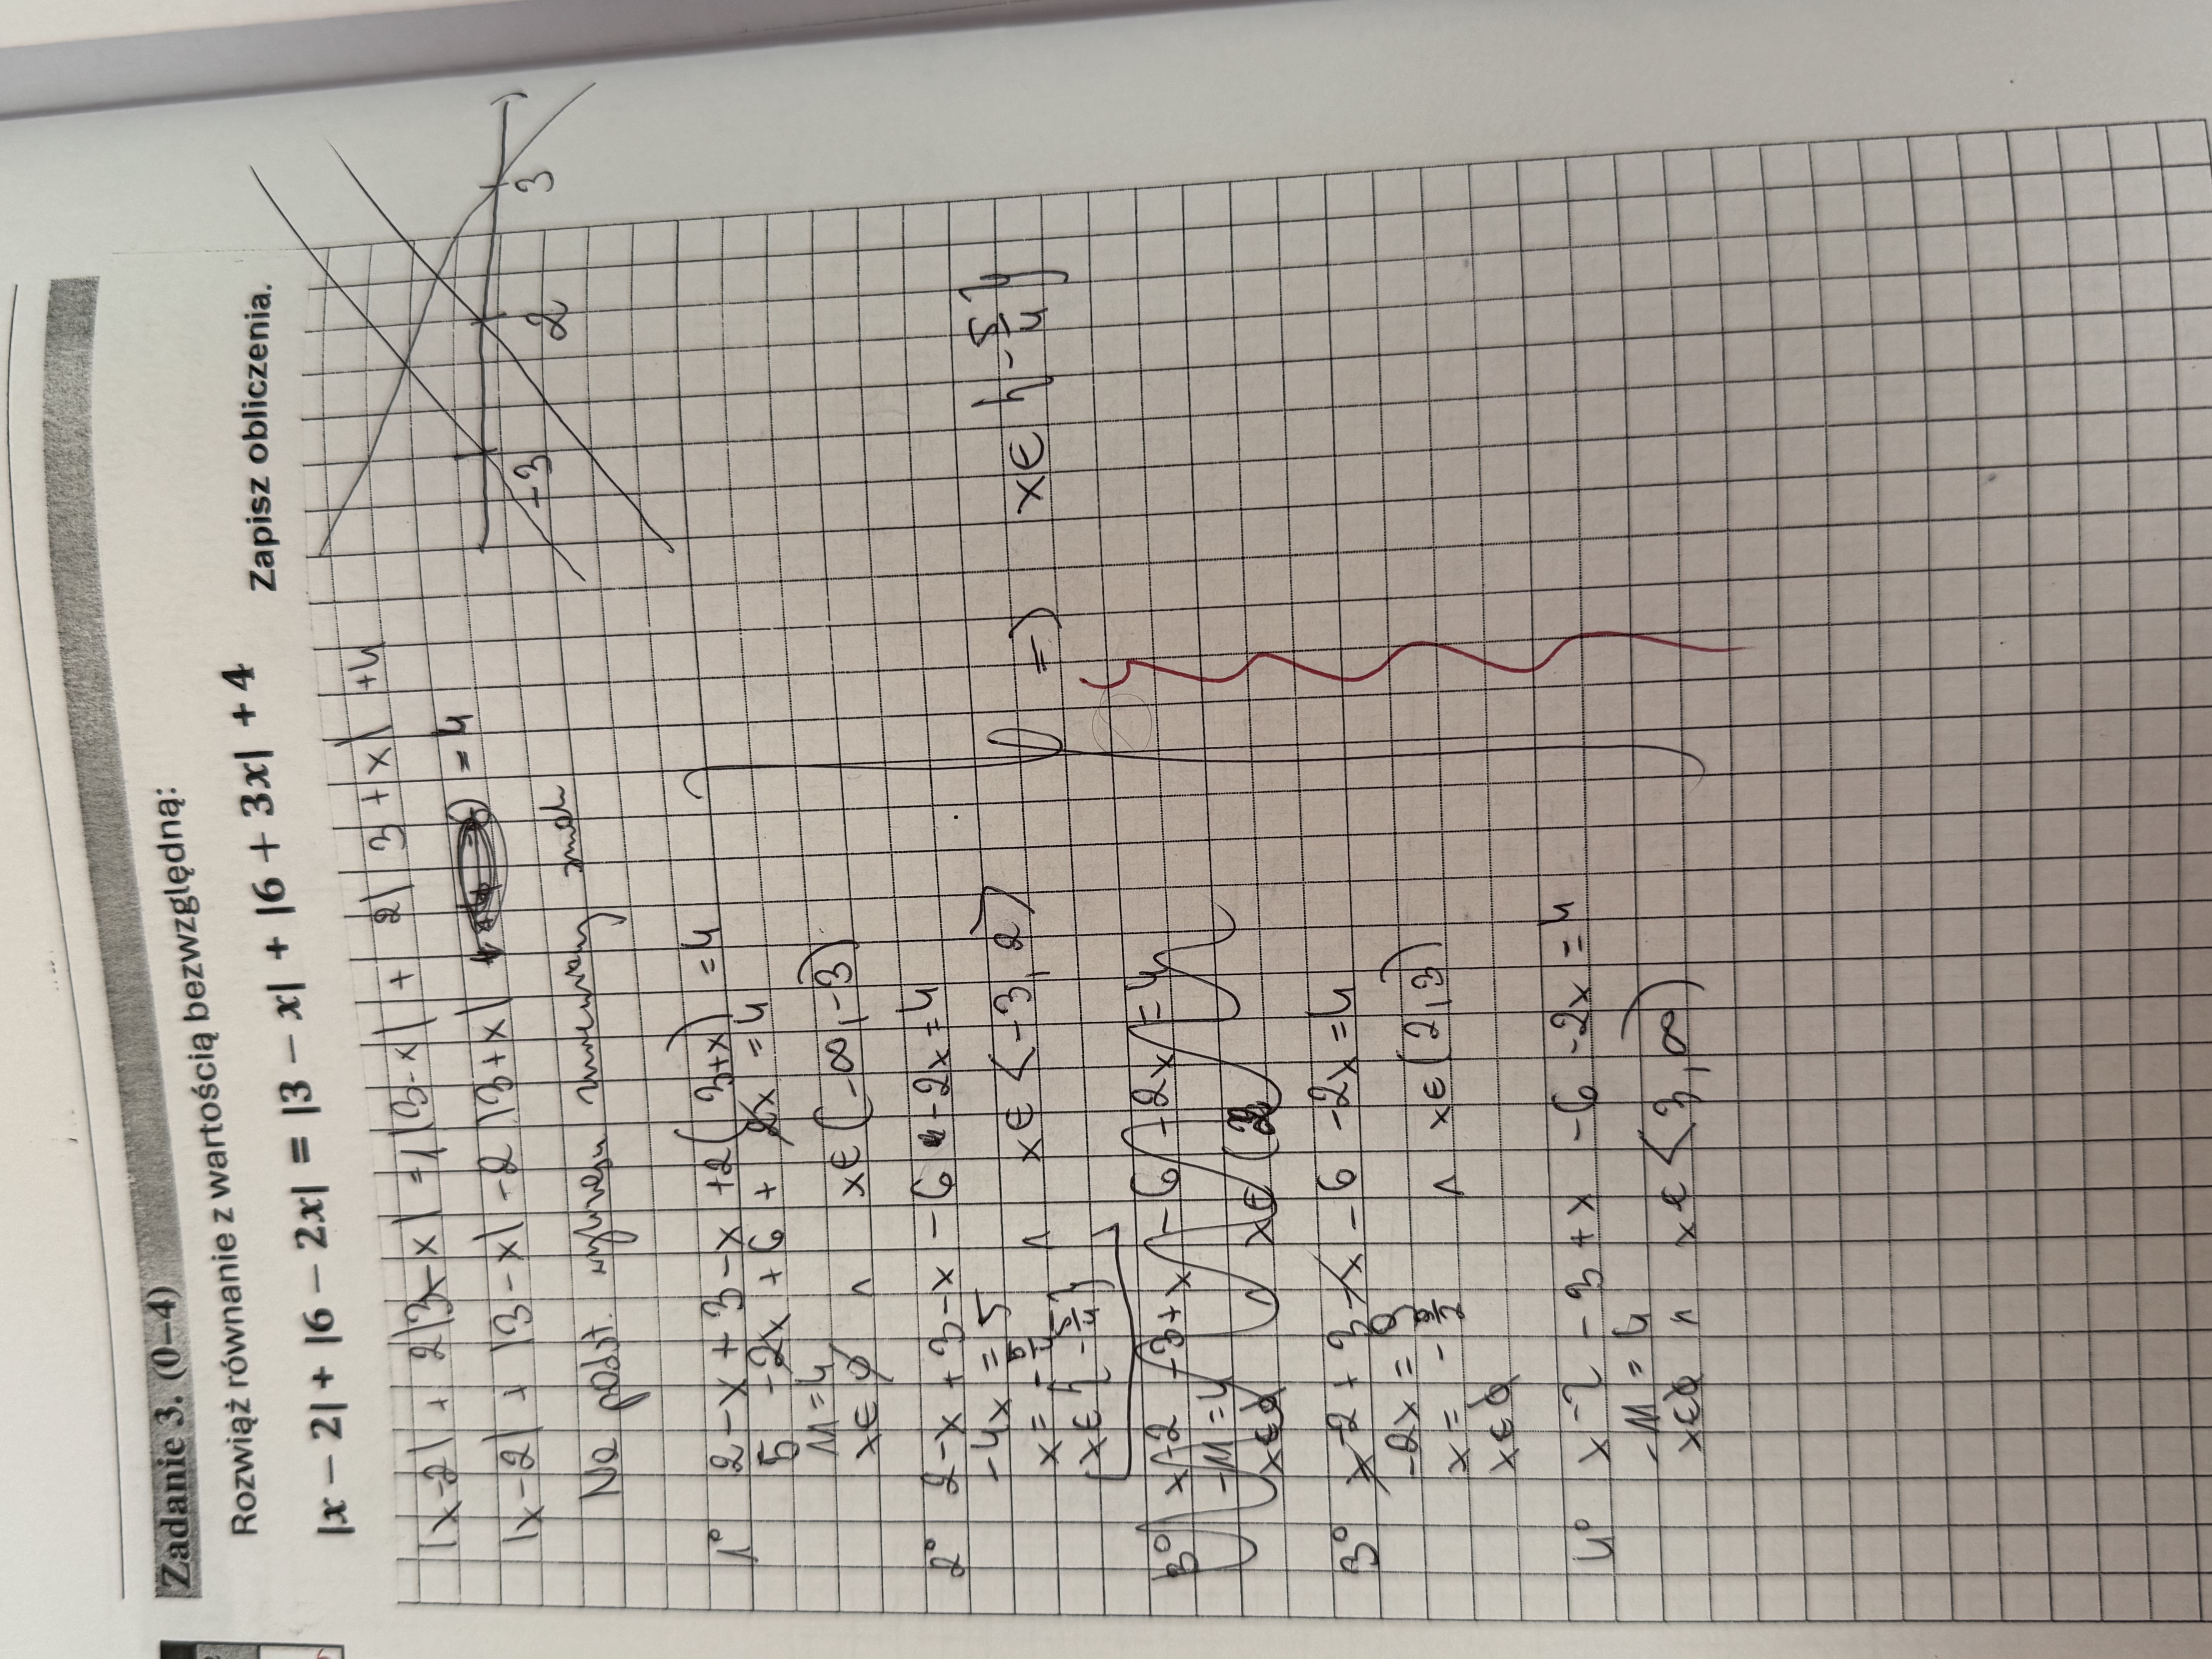 Zadanie 3. (0–4)
Rozwiąż równanie z wartością bezwzględną:
|x − 2| + |6 − 2x| = |3 − x| + |6 + 3x| + 4
Zapisz obliczenia.
|x-2| + 2|3-x| = |3-x| + 2|3+x| +4
|x-2| + |3-x| -2|3+x| = 4
Na podst. wykresu
-3 2 3
1° 2-x+3-x +2(3+x) =4
5 -2x +6 + 2x =4
11=4
x∈ ∅ ∧ x∈(-∞,-3)
2° 2-x+3-x-6-2x=4
-4x = 5
x= -5/4 ∧ x∈<-3,2>
x∈{-5/4}
=> x∈{-5/4}
3° x-2-3+x-6-2x=4
-11=4
x∈∅ x∈(2
3° x-2+3-x-6-2x=4
-2x=9
x= -9/2 ∧ x∈(2,3)
x∈∅
4° x-2-3+x-6-2x=4
-11=4
x∈∅ ∧ x∈<3,∞)